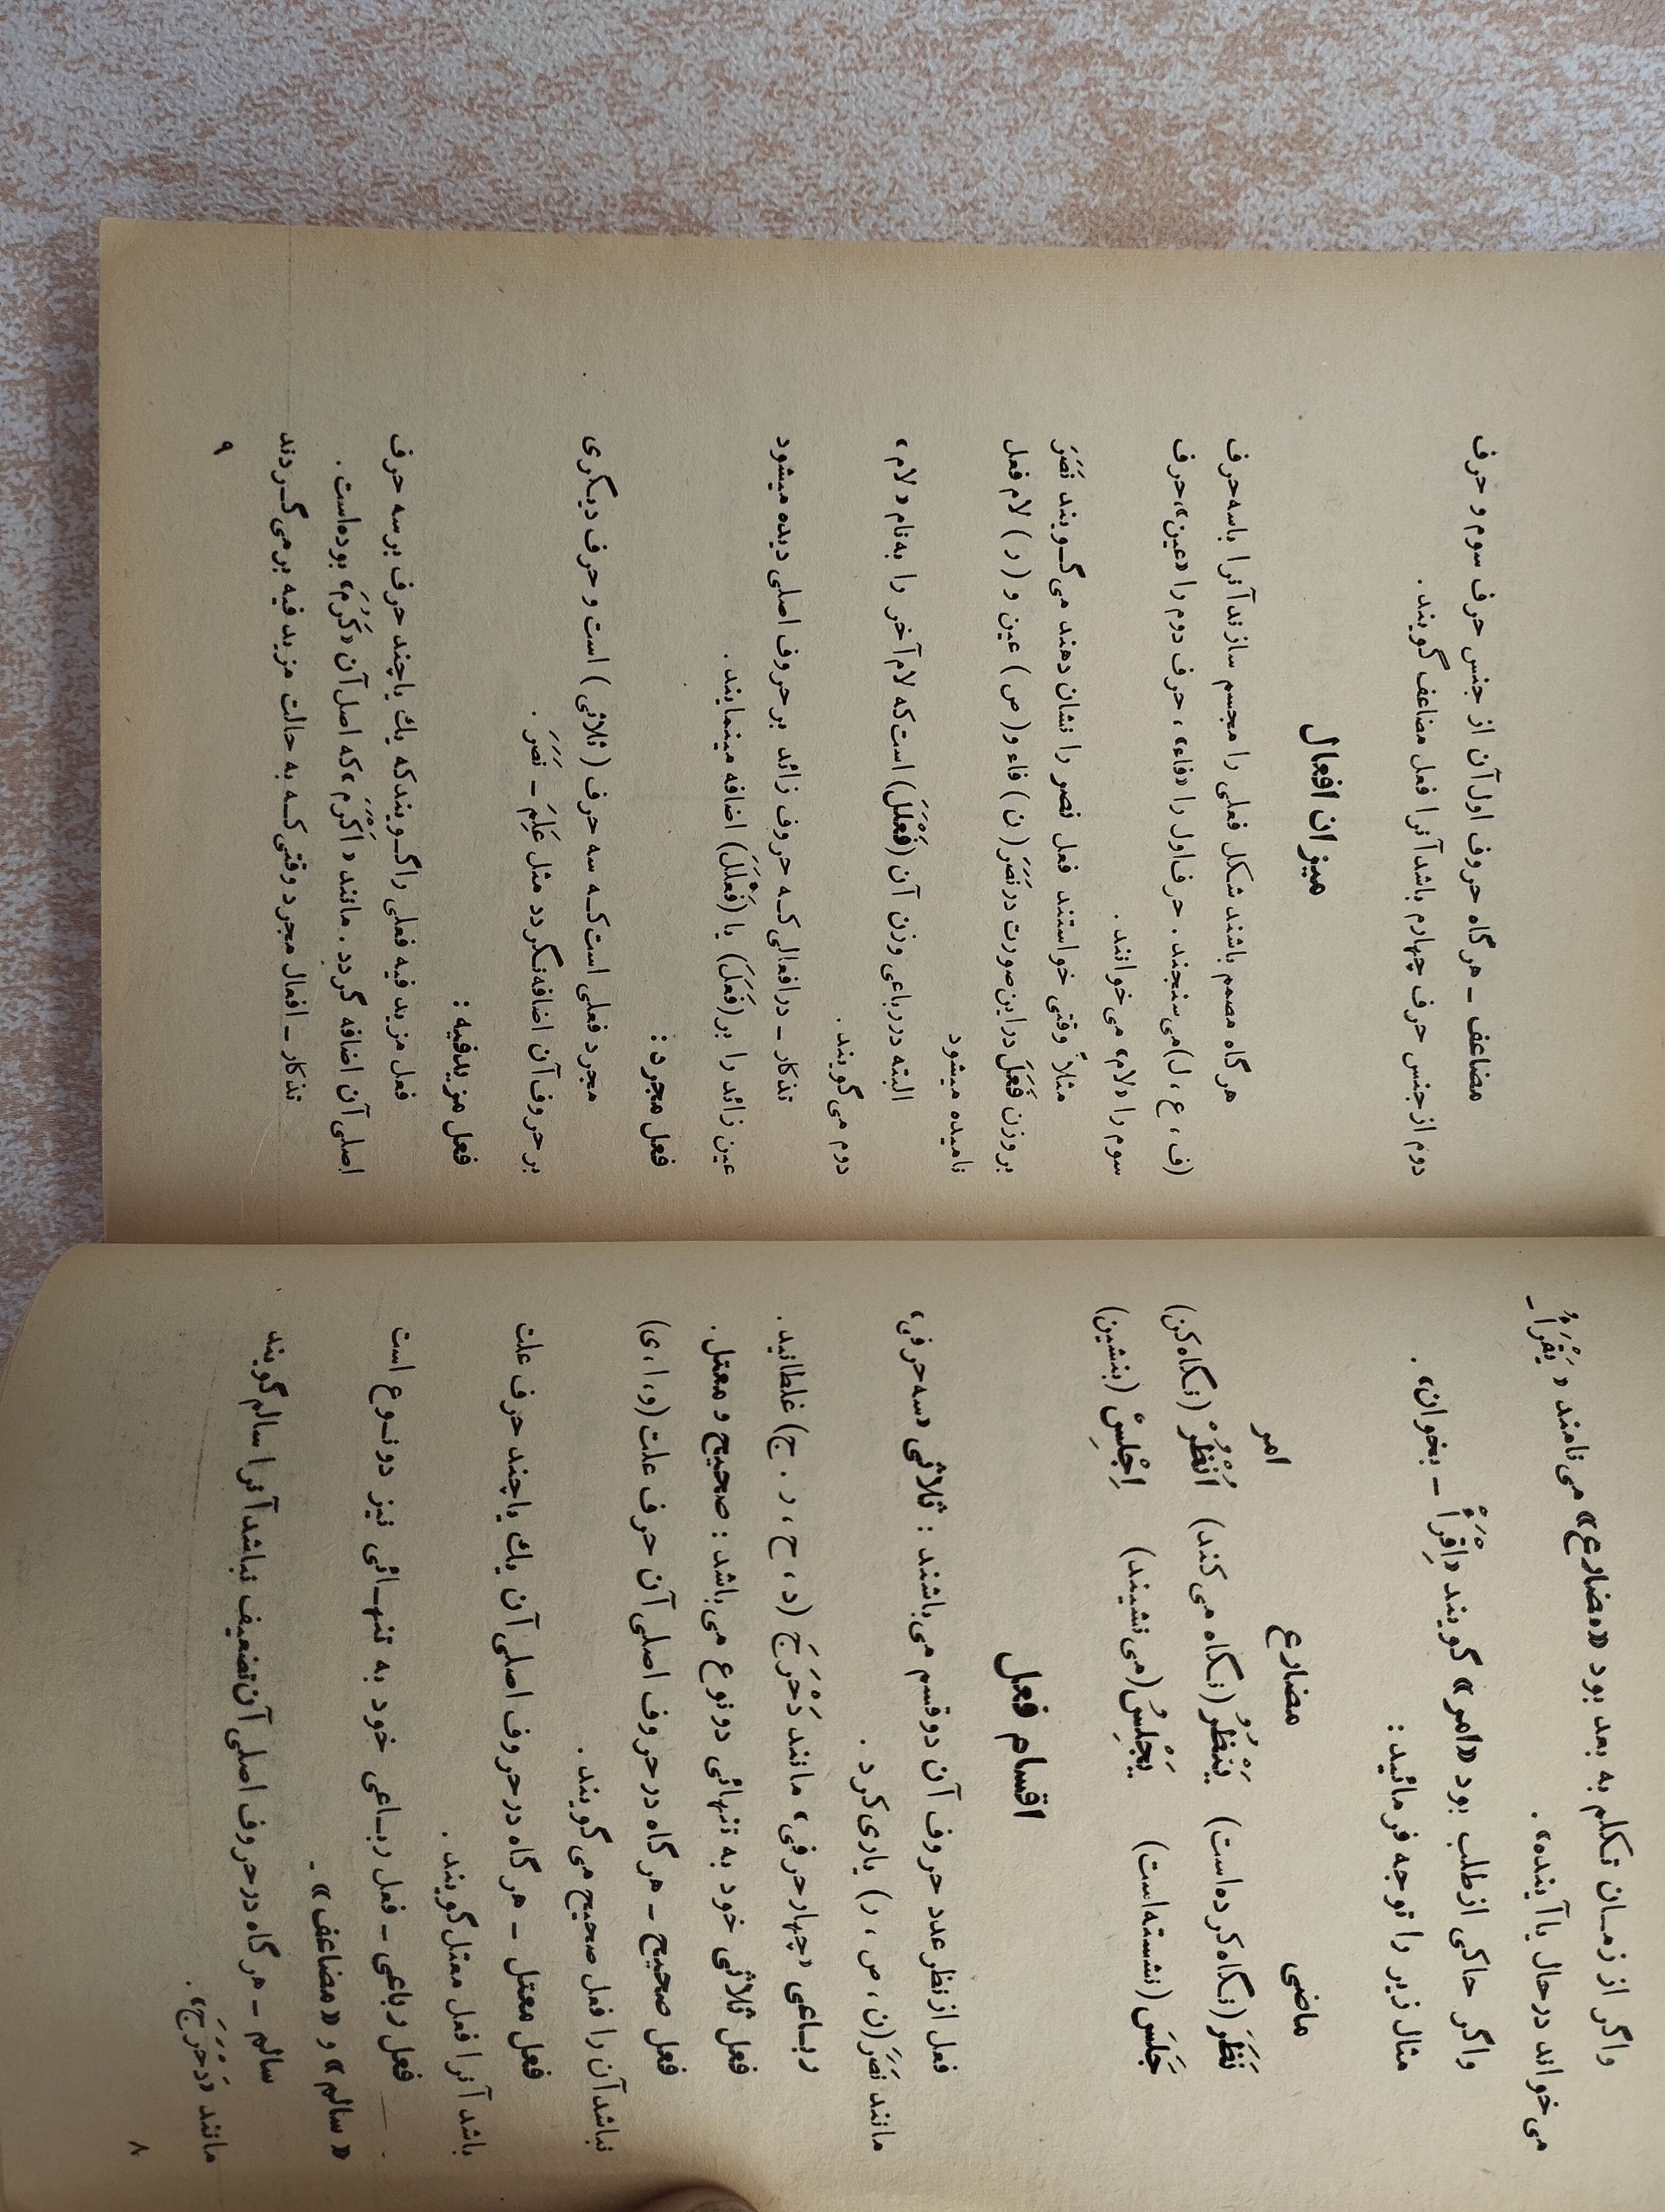 واگر از زمــان تـکلم به بعد بود «مضارع» می نامند « یَقْرَأُ ـ
می خواند درحال یا آینده».
واگر حاکی ازطلب بود «امر» گویند «اِقْرَأْ ـ بخوان».
مثال زیر را توجه فرمائید:
ماضی مضارع امر
نَظَرَ (نگاه کرده است) یَنْظُرُ (نگاه می کند) اُنْظُرْ (نگاه کن)
جَلَسَ (نشسته است) یَجْلِسُ (می نشیند) اِجْلِسْ (بنشین)
اقسام فعل
فعل ازنظر عدد حروف آن دوقسم می باشند : ثلاثی «سه حرفی»
مانند نَصَرَ (ن، ص، ر) یاری کرد .
ربـاعی «چهار حرفی» مانند دَحْرَجَ (د، ح، ر . ج) غلطانید .
فعل ثلاثی خود به تنهائی دو نوع می باشد : صحیح و معتل .
فعل صحیح ـ هر گاه در حروف اصلی آن حرف علت (و، ا، ی)
نباشد آن را فعل صحیح می گویند .
فعل معتل ـ هر گاه در حروف اصلی آن یك یاچند حرف علت
باشد آنرا فعل معتل گویند .
فعل رباعی ـ فعل ربـاعی خود به تنهـائی نیز دونـوع است
«سالم» و «مضاعف» .
سالم ـ هر گاه در حروف اصلی آن تضعیف نباشد آنرا سالم گویند
مانند «دَحْرَجَ» .
۸
مضاعف ـ هر گاه حروف اول آن از جنس حرف سوم و حرف
دوم از جنس حرف چهارم باشد آنرا فعل مضاعف گویند .
میزان افعال
هر گاه مصمم باشند شکل فعلی را مجسم سازند آنرا باسه حرف
(ف ، ع ، ل) می سنجند . حرف اول را «فاء» ، حرف دوم را «عین» ، حرف
سوم را «لام» می خوانند .
مثلاً وقتی خواستند فعل نصر را نشان دهند می گـویند نَصَرَ
بر وزن فَعَلَ دراین صورت در نَصَرَ ( ن ) فاء و ( ص ) عین و ( ر ) لام فعل
نامیده میشود
البته در رباعی وزن آن (فَعْلَلَ) است که لام آخر را به نام « لام »
دوم می گویند .
تذکار ـ در افعالی کـه حروف زائد بر حروف اصلی دیده میشود
عین زائد را بر (فَعَلَ) یا (فَعْلَلَ) اضافه مینمایند .
فعل مجرد :
مجرد فعلی است کـه سه حرف ( ثلاثی ) است و حرف دیگری
بر حروف آن اضافه نگردد مثل عَلِمَ ـ نَصَرَ .
فعل مزیدفیه :
فعل مزید فیه فعلی را گـویند که یك یاچند حرف بر سه حرف
اصلی آن اضافه گردد . مانند « اَکْرَمَ » که اصل آن « کَرُمَ » بوده است .
تذکار ـ افعال مجرد وقتی کـه به حالت مزید فیه بر می گـردند
۹